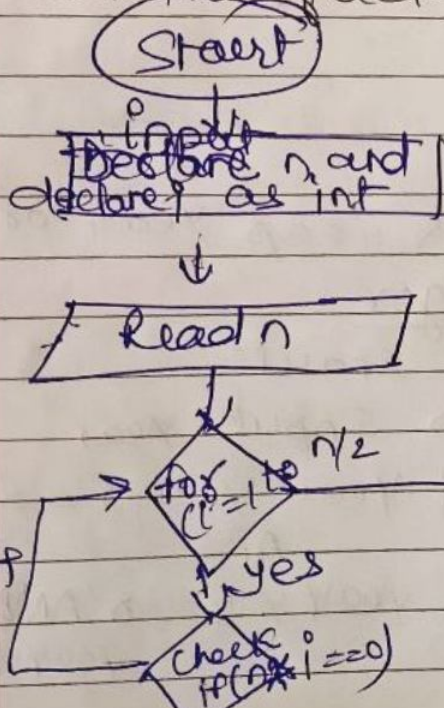 Start
input
Declare n, and
declare i as int
Read n
n/2
for to
(i=1
yes
check
if(n%i==0)